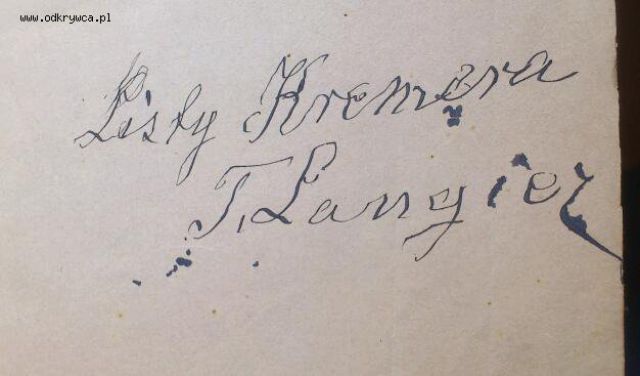 www.odkrywca.pl
Listy Kremera
T. Langier